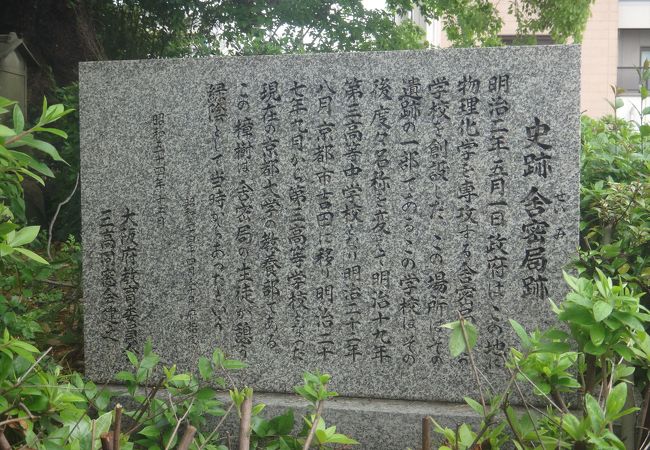 史跡 舎密局跡
せいみ
明治二年五月一日政府はこの地に
物理化学を専攻する舎密局
学校を創設した この場所はその
遺跡の一部である この学校はその
後度々名称を変えて明治十九年
第三高等中学校となり明治二十二年
八月京都市吉田に移り明治二十
七年 月から第三高等学校となった
現在の京都大学の教養部である
この樟樹は舎密局の生徒が憩
縁陰として当時からあったという
昭和 十四年十二月
大阪府教育委員会
三高同窓会建之